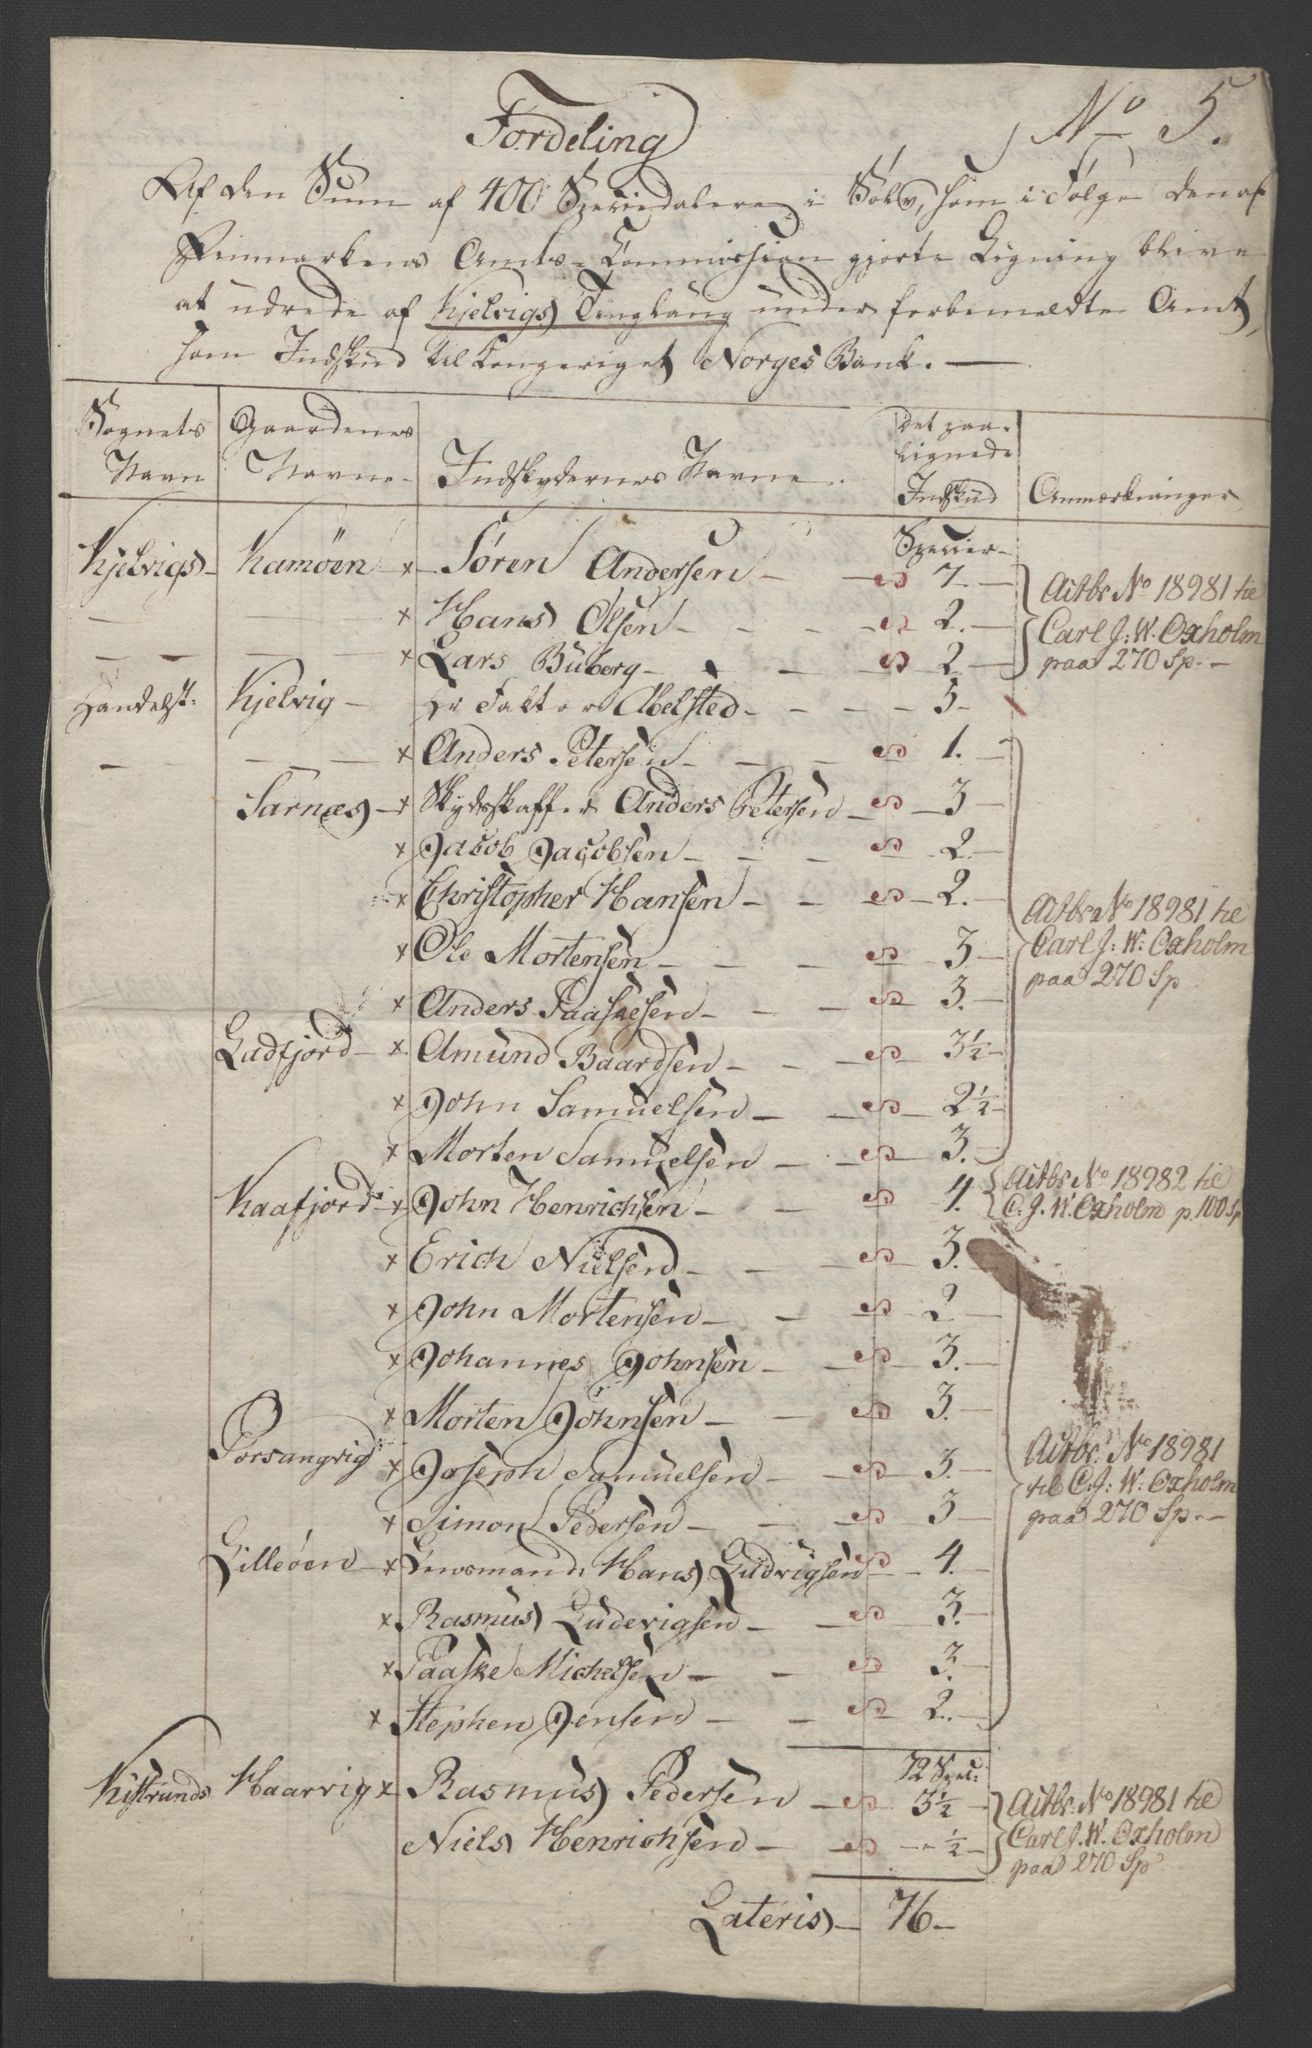 No 5.
Fordeling
Af den Sum af 400 Speciedalere i Sølv, som i Følge den af
Finmarkens Amts-Commission gjorte Ligning blive
at udrede af Kjelvigs Tinglaug under forbemeldte Amt,
som Indskud til Kongeriget Norges Bank. —
Sognets Navn | Gaardenes Navne | Indskydernes Navne. | Det paalignede Indskud | Anmærkninger
Specier
Kjelvigs | Kamøen | x Søren Andersen | 7. | Actbr No 18981 til
— | — | x Hans Olsen | 2. | Carl J: W. Oxholm
— | — | x Lars Buberg | 2 | paa 270 Sp. —
Handelst: | Kjelvig | Hr Factor Abelsted | 5
— | — | x Anders Petersen | 1.
Sarnæs | x Skydsskaffer Anders Petersen | 3
x Jacob Jacobsen | 2.
x Christopher Hansen | 2. | Actbr No 18981 til
x Ole Mortensen | 3 | Carl J: W: Oxholm
x Anders Paaskesen | 3. | paa 270 Sp
Ladfjord | x Amund Baardsen | 3½
x John Samuelsen | 2½
x Morten Samuelsen | 3. | Actbr No 18982 til
Kaafjord | x John Henrichsen | 4. | C. J. W. Oxholm p. 100 Sp
x Erich Nielsen | 3.
x John Mortensen | 2
x Johannes Johnsen | 3.
x Morten Johnsen | 3.
Porsangvig | x Joseph Samuelsen | 3. | Actbr. No 18981
x Simon Pedersen | 3 | til C: J: W: Oxholm
paa 270 Sp. —
Lilleøen | x Lensmand Hans Ludvigsen | 4.
x Rasmus Ludevigsen | 3.
x Paaske Michelsen | 3.
x Stephen Jensen | 2.
72 Spec:
Kistrands | Haarvig | x Rasmus Pedersen | 3½ | Actbr. No 18981 til
Niels Henrichsen | " ½ | Carl J. W. Oxholm
paa 270 Sp.
Lateris | 76